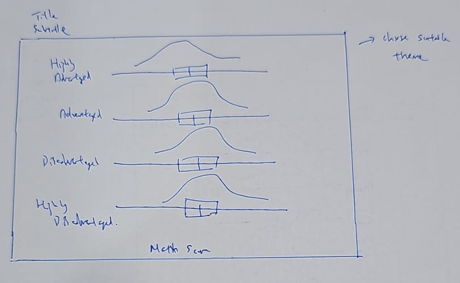 Title
Subtitle
→ choose suitable
theme
Highly
Advantaged
Advantaged
Disadvantaged
Highly
Disadvantaged.
Math Score